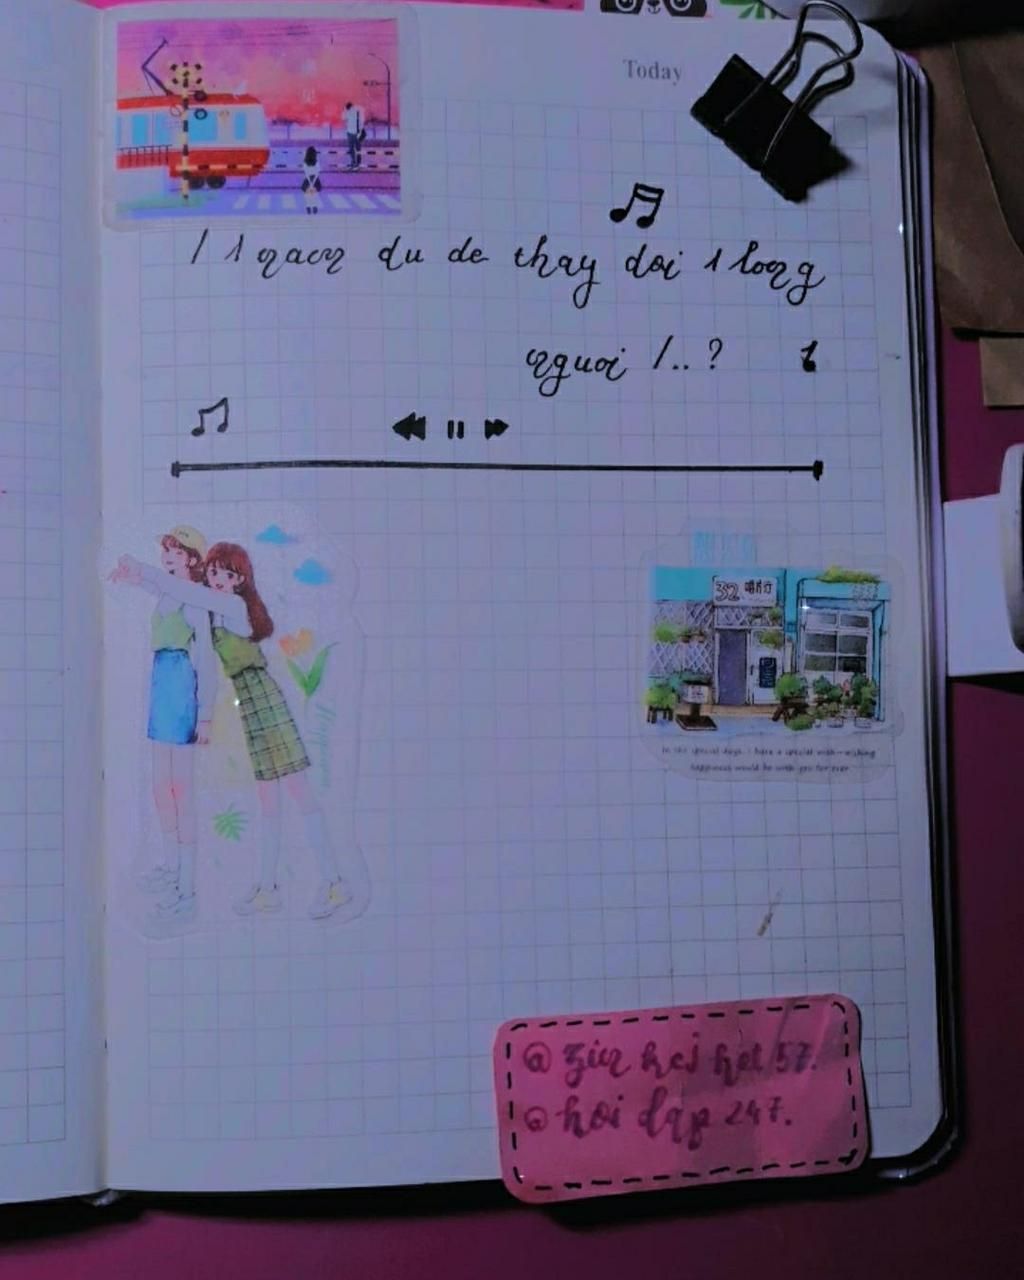 Today
/ 1 nacn du de thay doi 1 long
nguoi /.. ?
32
In the special days, I have a special wish—wishing
happiness would be with you for ever
@ zin hei het 57.
@ hoi dap 247.